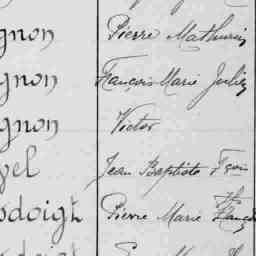 gnon Pierre Mathurin
gnon François Marie Julien
gnon Victor
vel Jean Baptiste
doigt Pierre Marie